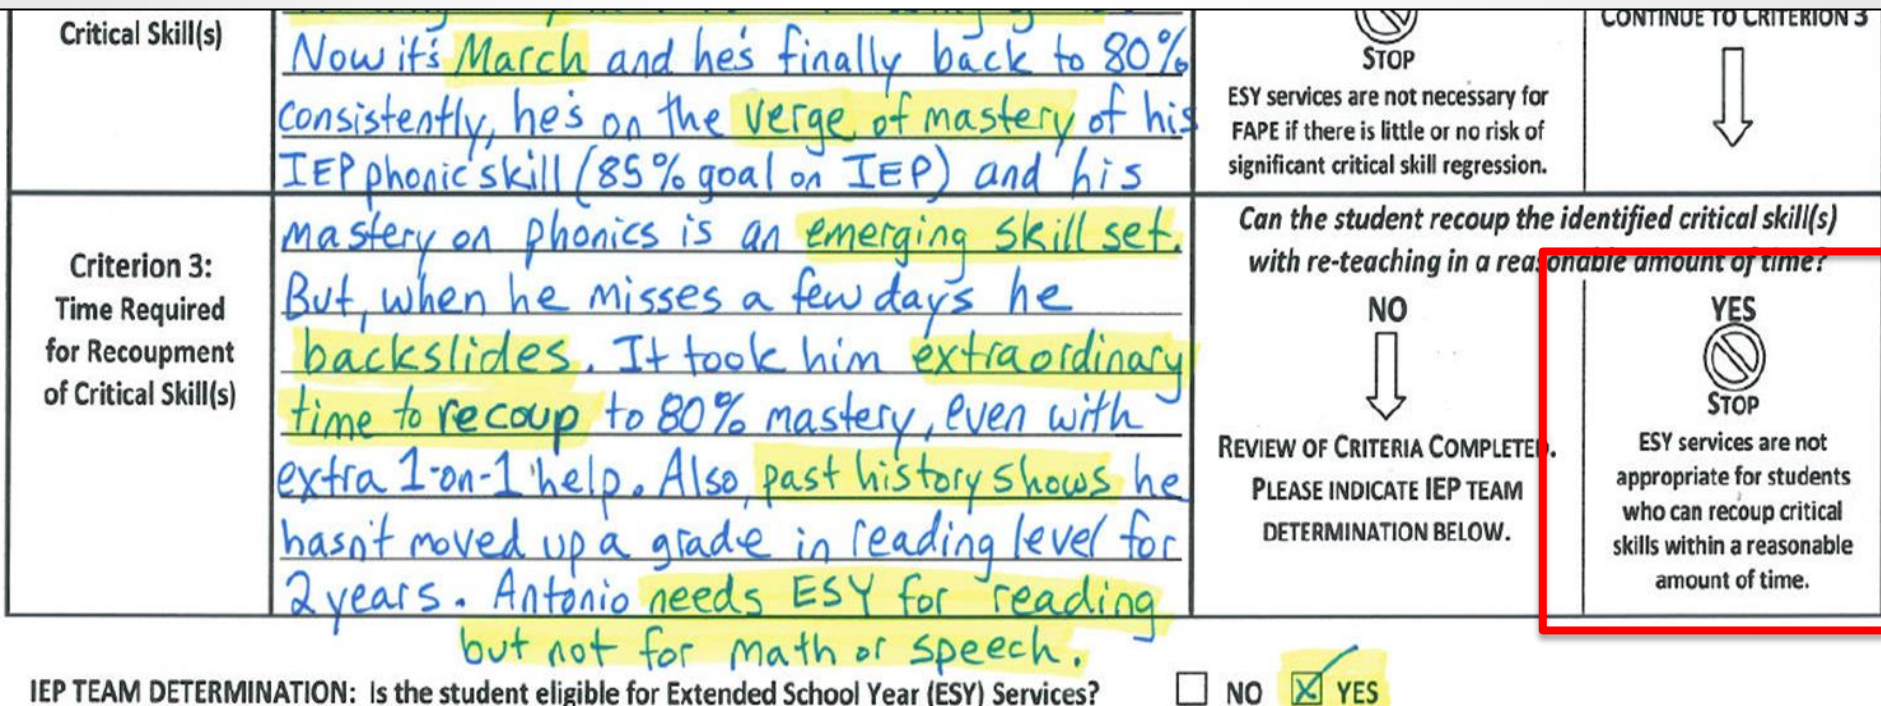 Critical Skill(s)
Now it's March and he's finally back to 80%
consistently, he's on the verge of mastery of his
IEP phonic skill (85% goal on IEP) and his
STOP
ESY services are not necessary for
FAPE if there is little or no risk of
significant critical skill regression.
CONTINUE TO CRITERION 3
Criterion 3:
Time Required
for Recoupment
of Critical Skill(s)
mastery on phonics is an emerging skill set.
But, when he misses a few days he
backslides. It took him extraordinary
time to recoup to 80% mastery, even with
extra 1-on-1 help. Also, past history shows he
hasn't moved up a grade in reading level for
2 years. Antonio needs ESY for reading
but not for math or speech.
Can the student recoup the identified critical skill(s)
with re-teaching in a reasonable amount of time?
NO
REVIEW OF CRITERIA COMPLETED.
PLEASE INDICATE IEP TEAM
DETERMINATION BELOW.
YES
STOP
ESY services are not
appropriate for students
who can recoup critical
skills within a reasonable
amount of time.
IEP TEAM DETERMINATION: Is the student eligible for Extended School Year (ESY) Services? NO YES